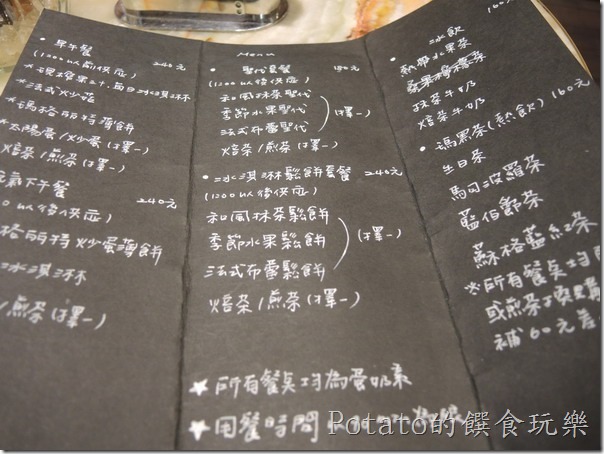 早午餐 240元
(1200以前供应)
法式炒菇
瑪格麗特薄餅
太陽蛋/炒蛋(擇一)
焙茶/煎茶(擇一)
氣下午餐 240元
00以後供应)
格麗特炒蛋薄餅
冰淇淋
/煎茶(擇一)
Menu
• 聖代套餐 180元
(1200以後供应)
和風抹茶聖代
季節水果聖代
法式布蕾聖代
(擇一)
焙茶/煎茶(擇一)
• 冰淇淋鬆餅套餐 240元
(1200以後供应)
和風抹茶鬆餅
季節水果鬆餅
法式布蕾鬆餅
(擇一)
焙茶/煎茶(擇一)
★ 所有餐点均為蛋奶素
★ 用餐時間
• 冰飲 160
熱帶水果茶
蘋果檸檬茶
抹茶牛奶
焙茶牛奶
• 瑪黑茶(熱飲) 160元
生日茶
馬可波羅茶
藍伯爵茶
蘇格藍紅茶
※所有餐点均
或煎茶
補60元差
Potato的饌食玩樂